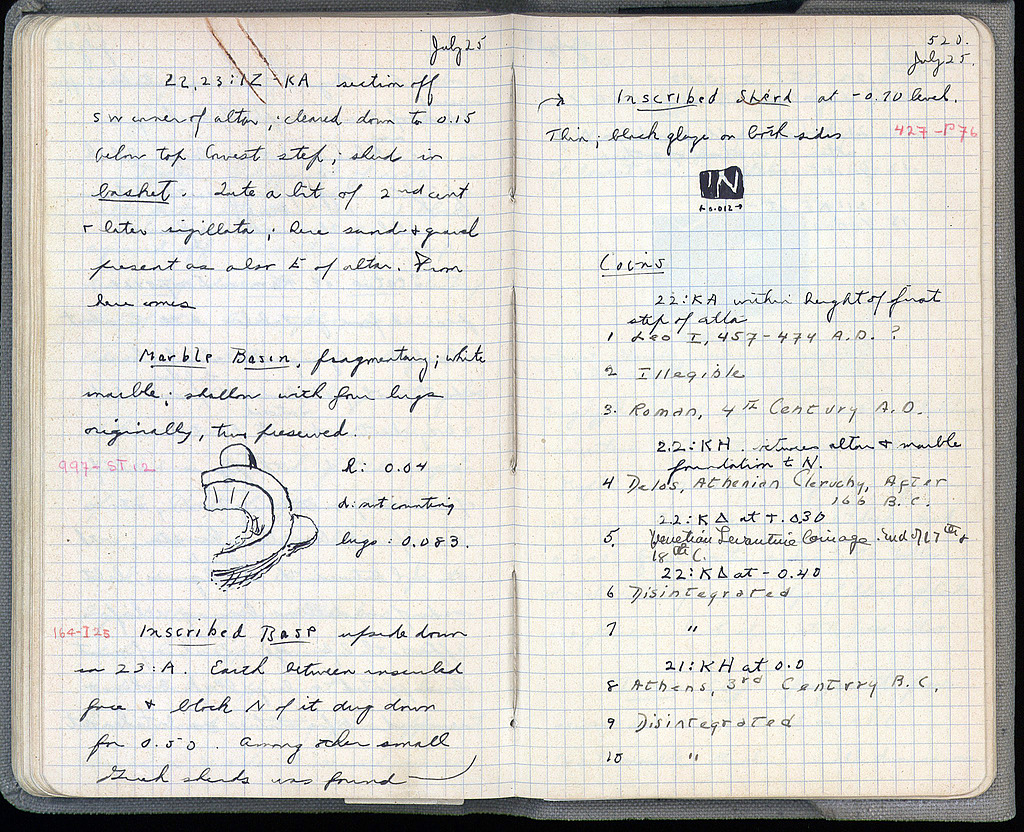 July 25
22,23:IZ-KA section off
SW corner of altar; cleared down to 0.15
below top lowest step; sherd in
basket. Quite a bit of 2nd cent
+ later sigillata; here sand + gravel
present as also E of altar. From
here comes
Marble Basin, fragmentary; white
marble; shallow with four lugs
originally, two preserved.
997-ST 12
h: 0.04
d: not counting
lugs: 0.083.
164-I 25 Inscribed Base upside down
in 23:A. Earth between inscribed
face + block N of it dug down
for 0.50. Among other small
Greek sherds was found
520.
July 25.
→ Inscribed Sherd at -0.70 level.
Thin; black glaze on both sides 427-P76
IN
←0.012→
Coins
22:KA within height of first
step of altar
1 Leo I, 457-474 A.D. ?
2 Illegible
3. Roman, 4th Century A.D.
22:KH between altar + marble
foundation to N.
4 Delos, Athenian Cleruchy, After
166 B.C.
22:KΔ at +.030
5. Venetian Levantine Coinage. End of 17th &
18th C.
22:KΔ at -0.40
6 Disintegrated
7 "
21:KH at 0.0
8 Athens, 3rd Century B.C.
9 Disintegrated
10 "